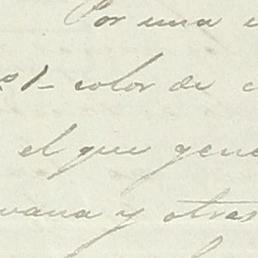 Por una
1- color de
el que gene
vana y otras